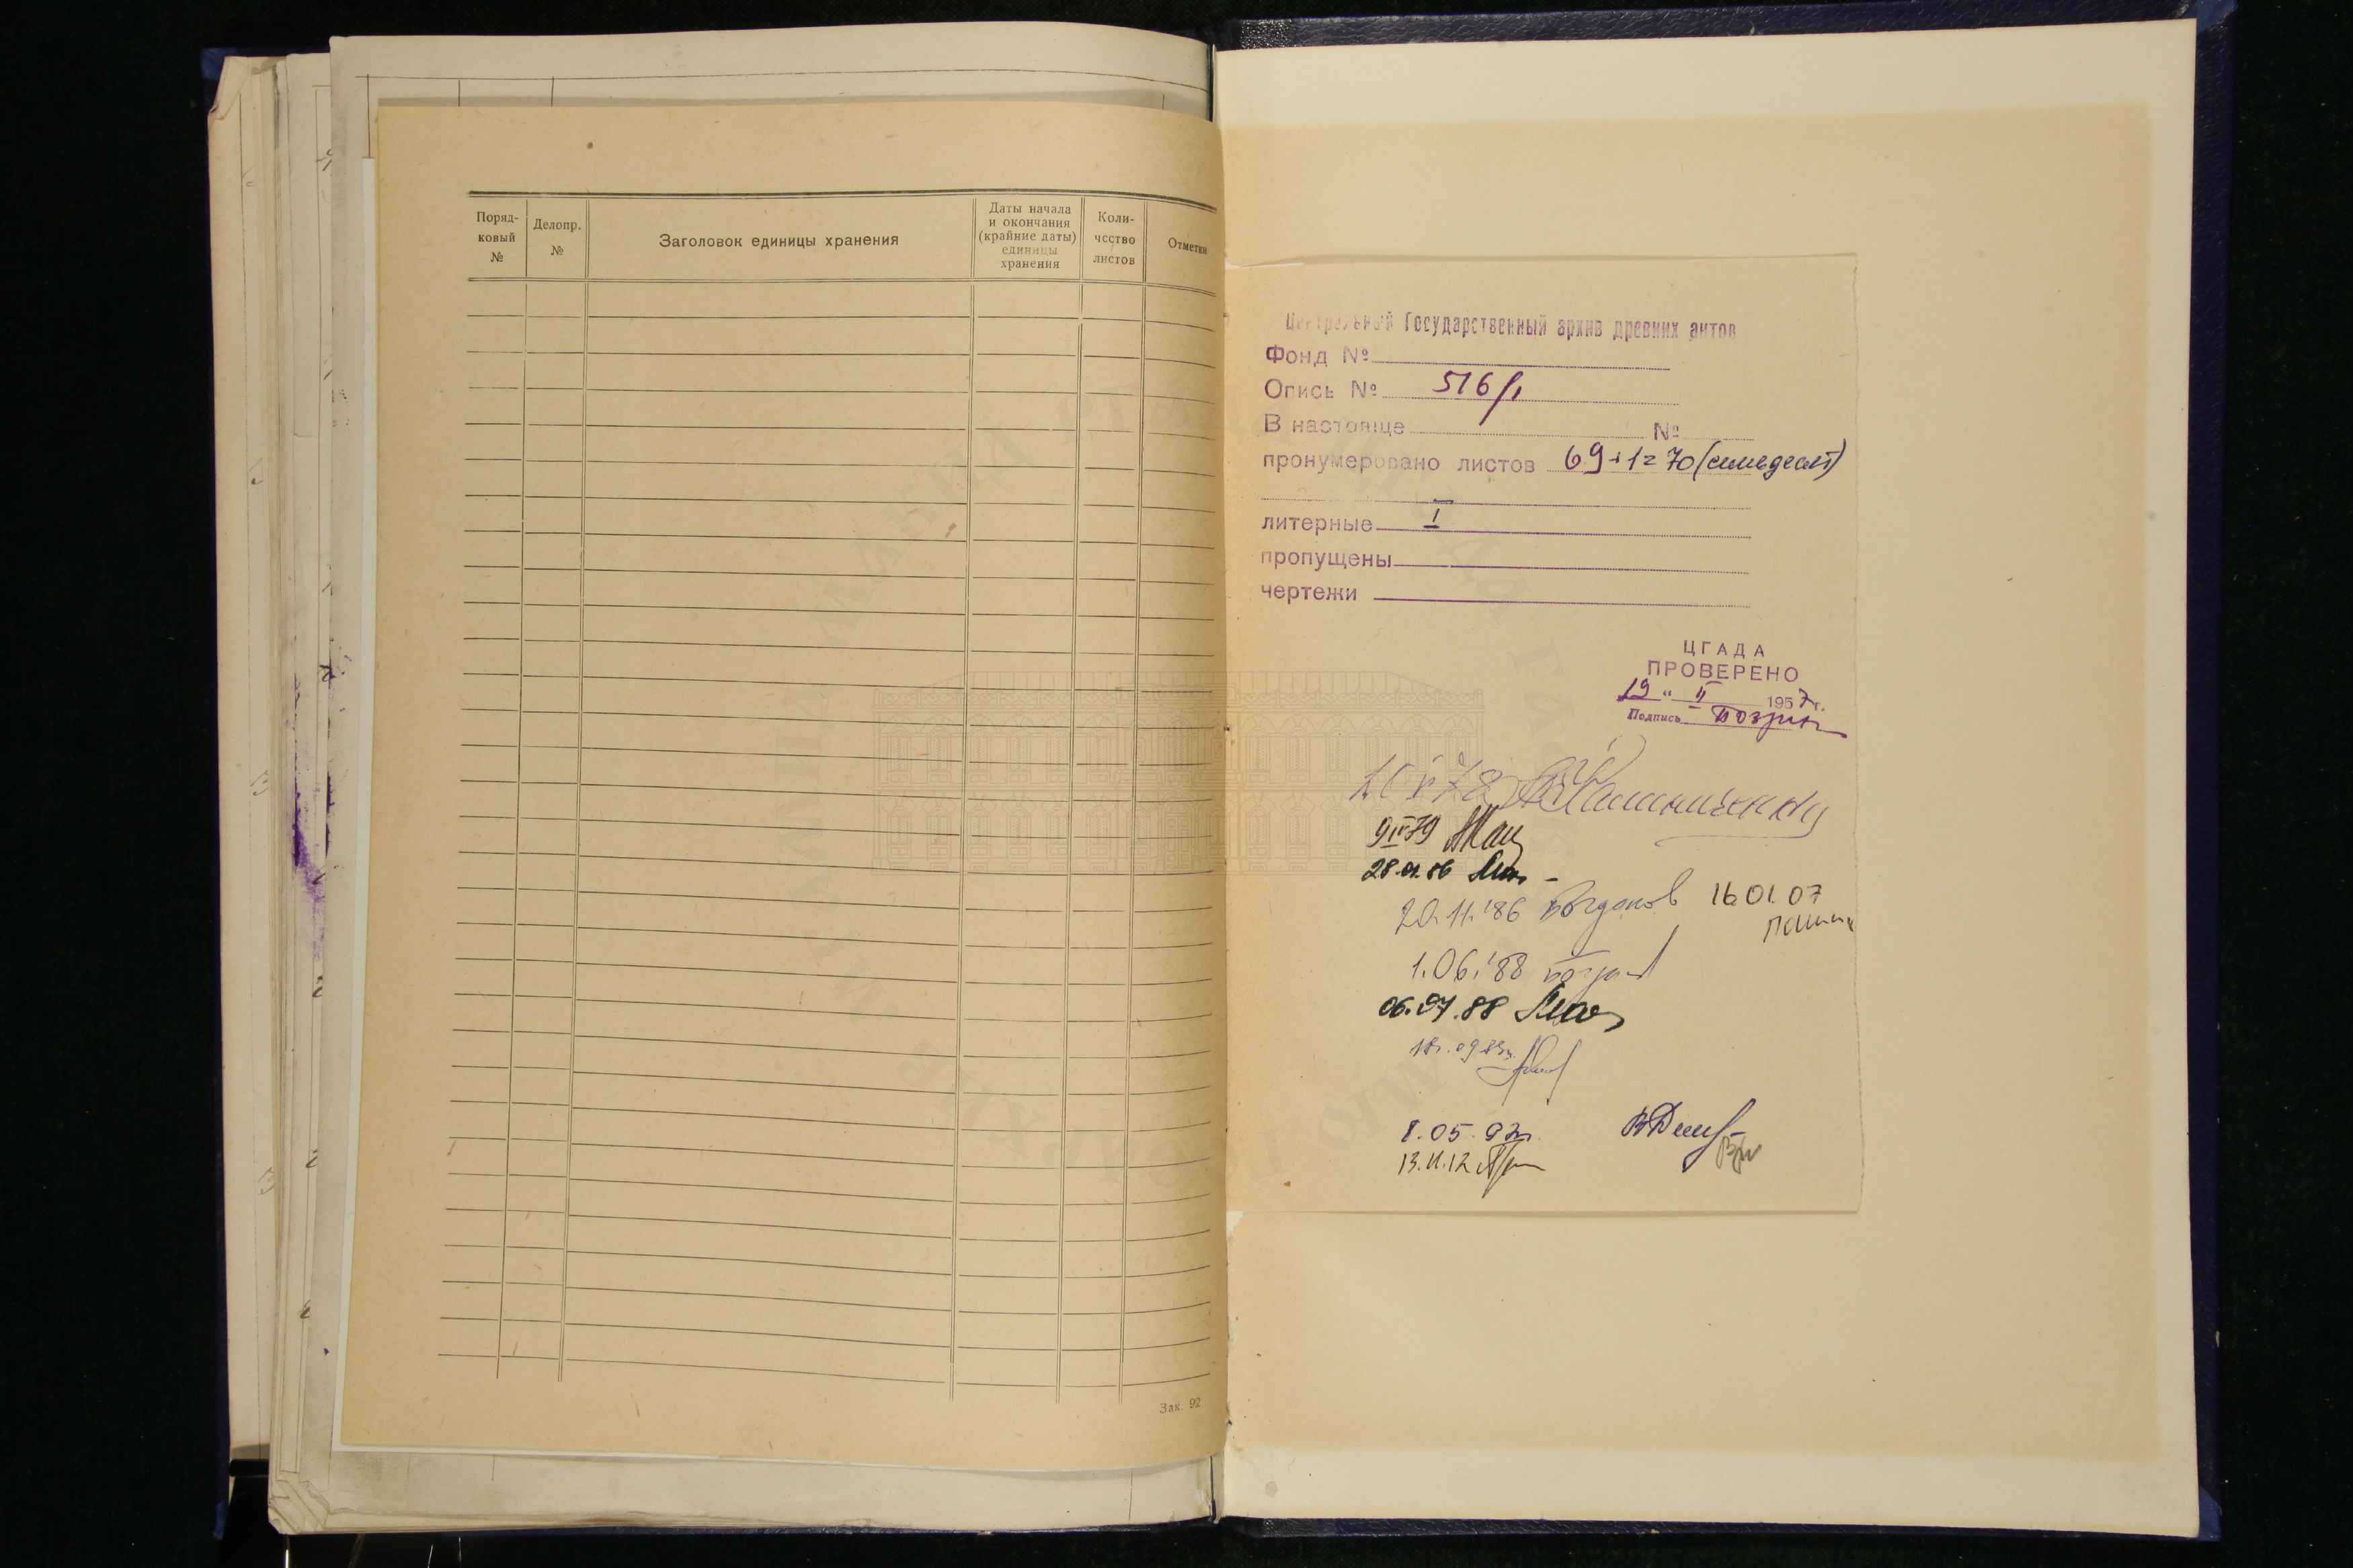 Поряд-
ковый
№
Делопр.
№
Заголовок единицы хранения
Даты начала
и окончания
(крайние даты)
единицы
хранения
Коли-
чество
листов
Отметки
Зак. 92
Центральный Государственный архив древних актов
Фонд №
Опись № 516/1
В настояще №
пронумеровано листов 69+1=70 (семьдесят)
литерные I
пропущены
чертежи
ЦГАДА
ПРОВЕРЕНО
19 " II 1957 г.
Подпись
9 IV 79
28.01.86
20.11.'86 Богданов 16.01.07
1.06.'88
06.07.88
8.05.92г.
13.11.12